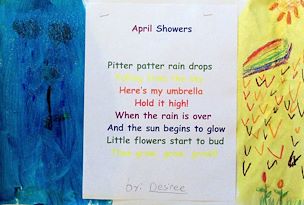 April Showers
Pitter patter rain drops
Falling from the sky
Here's my umbrella
Hold it high!
When the rain is over
And the sun begins to glow
Little flowers start to bud
And grow, grow, grow!
by: Desiree